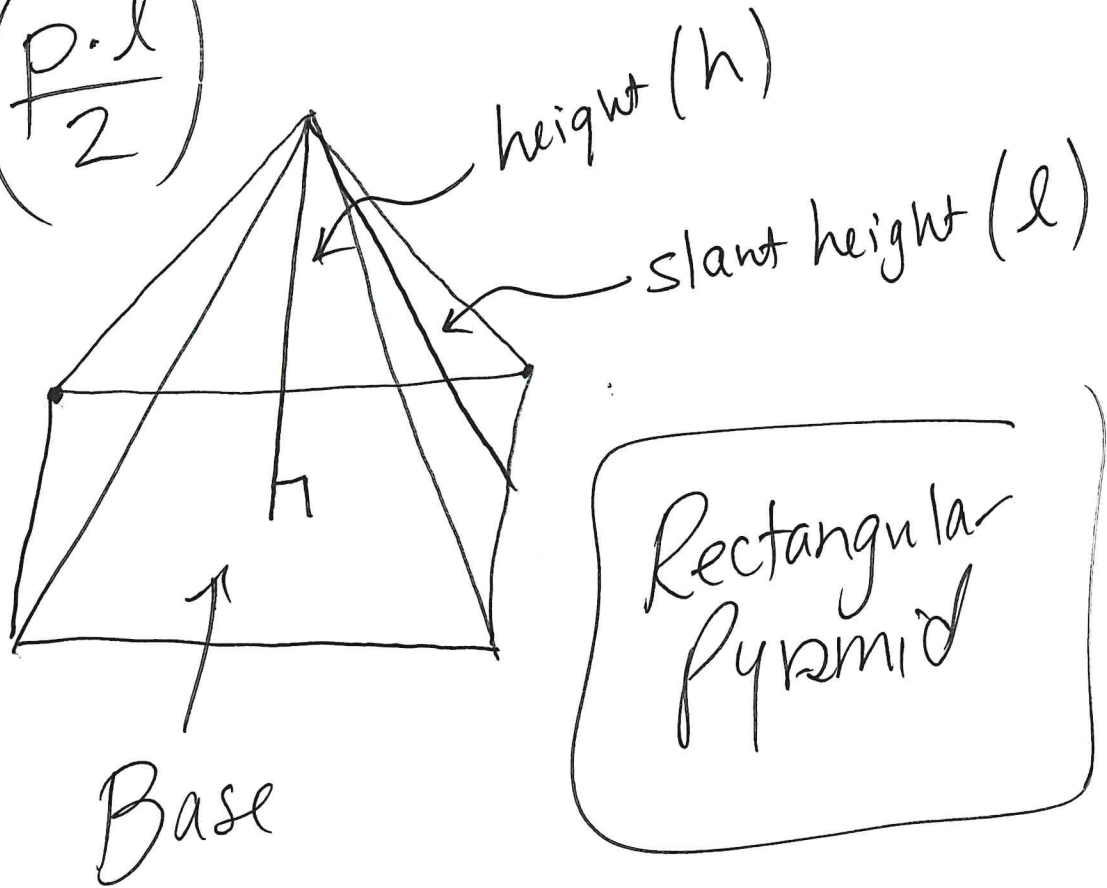 (p·l/2)
height (h)
slant height (l)
Rectangular
Pyramid
Base